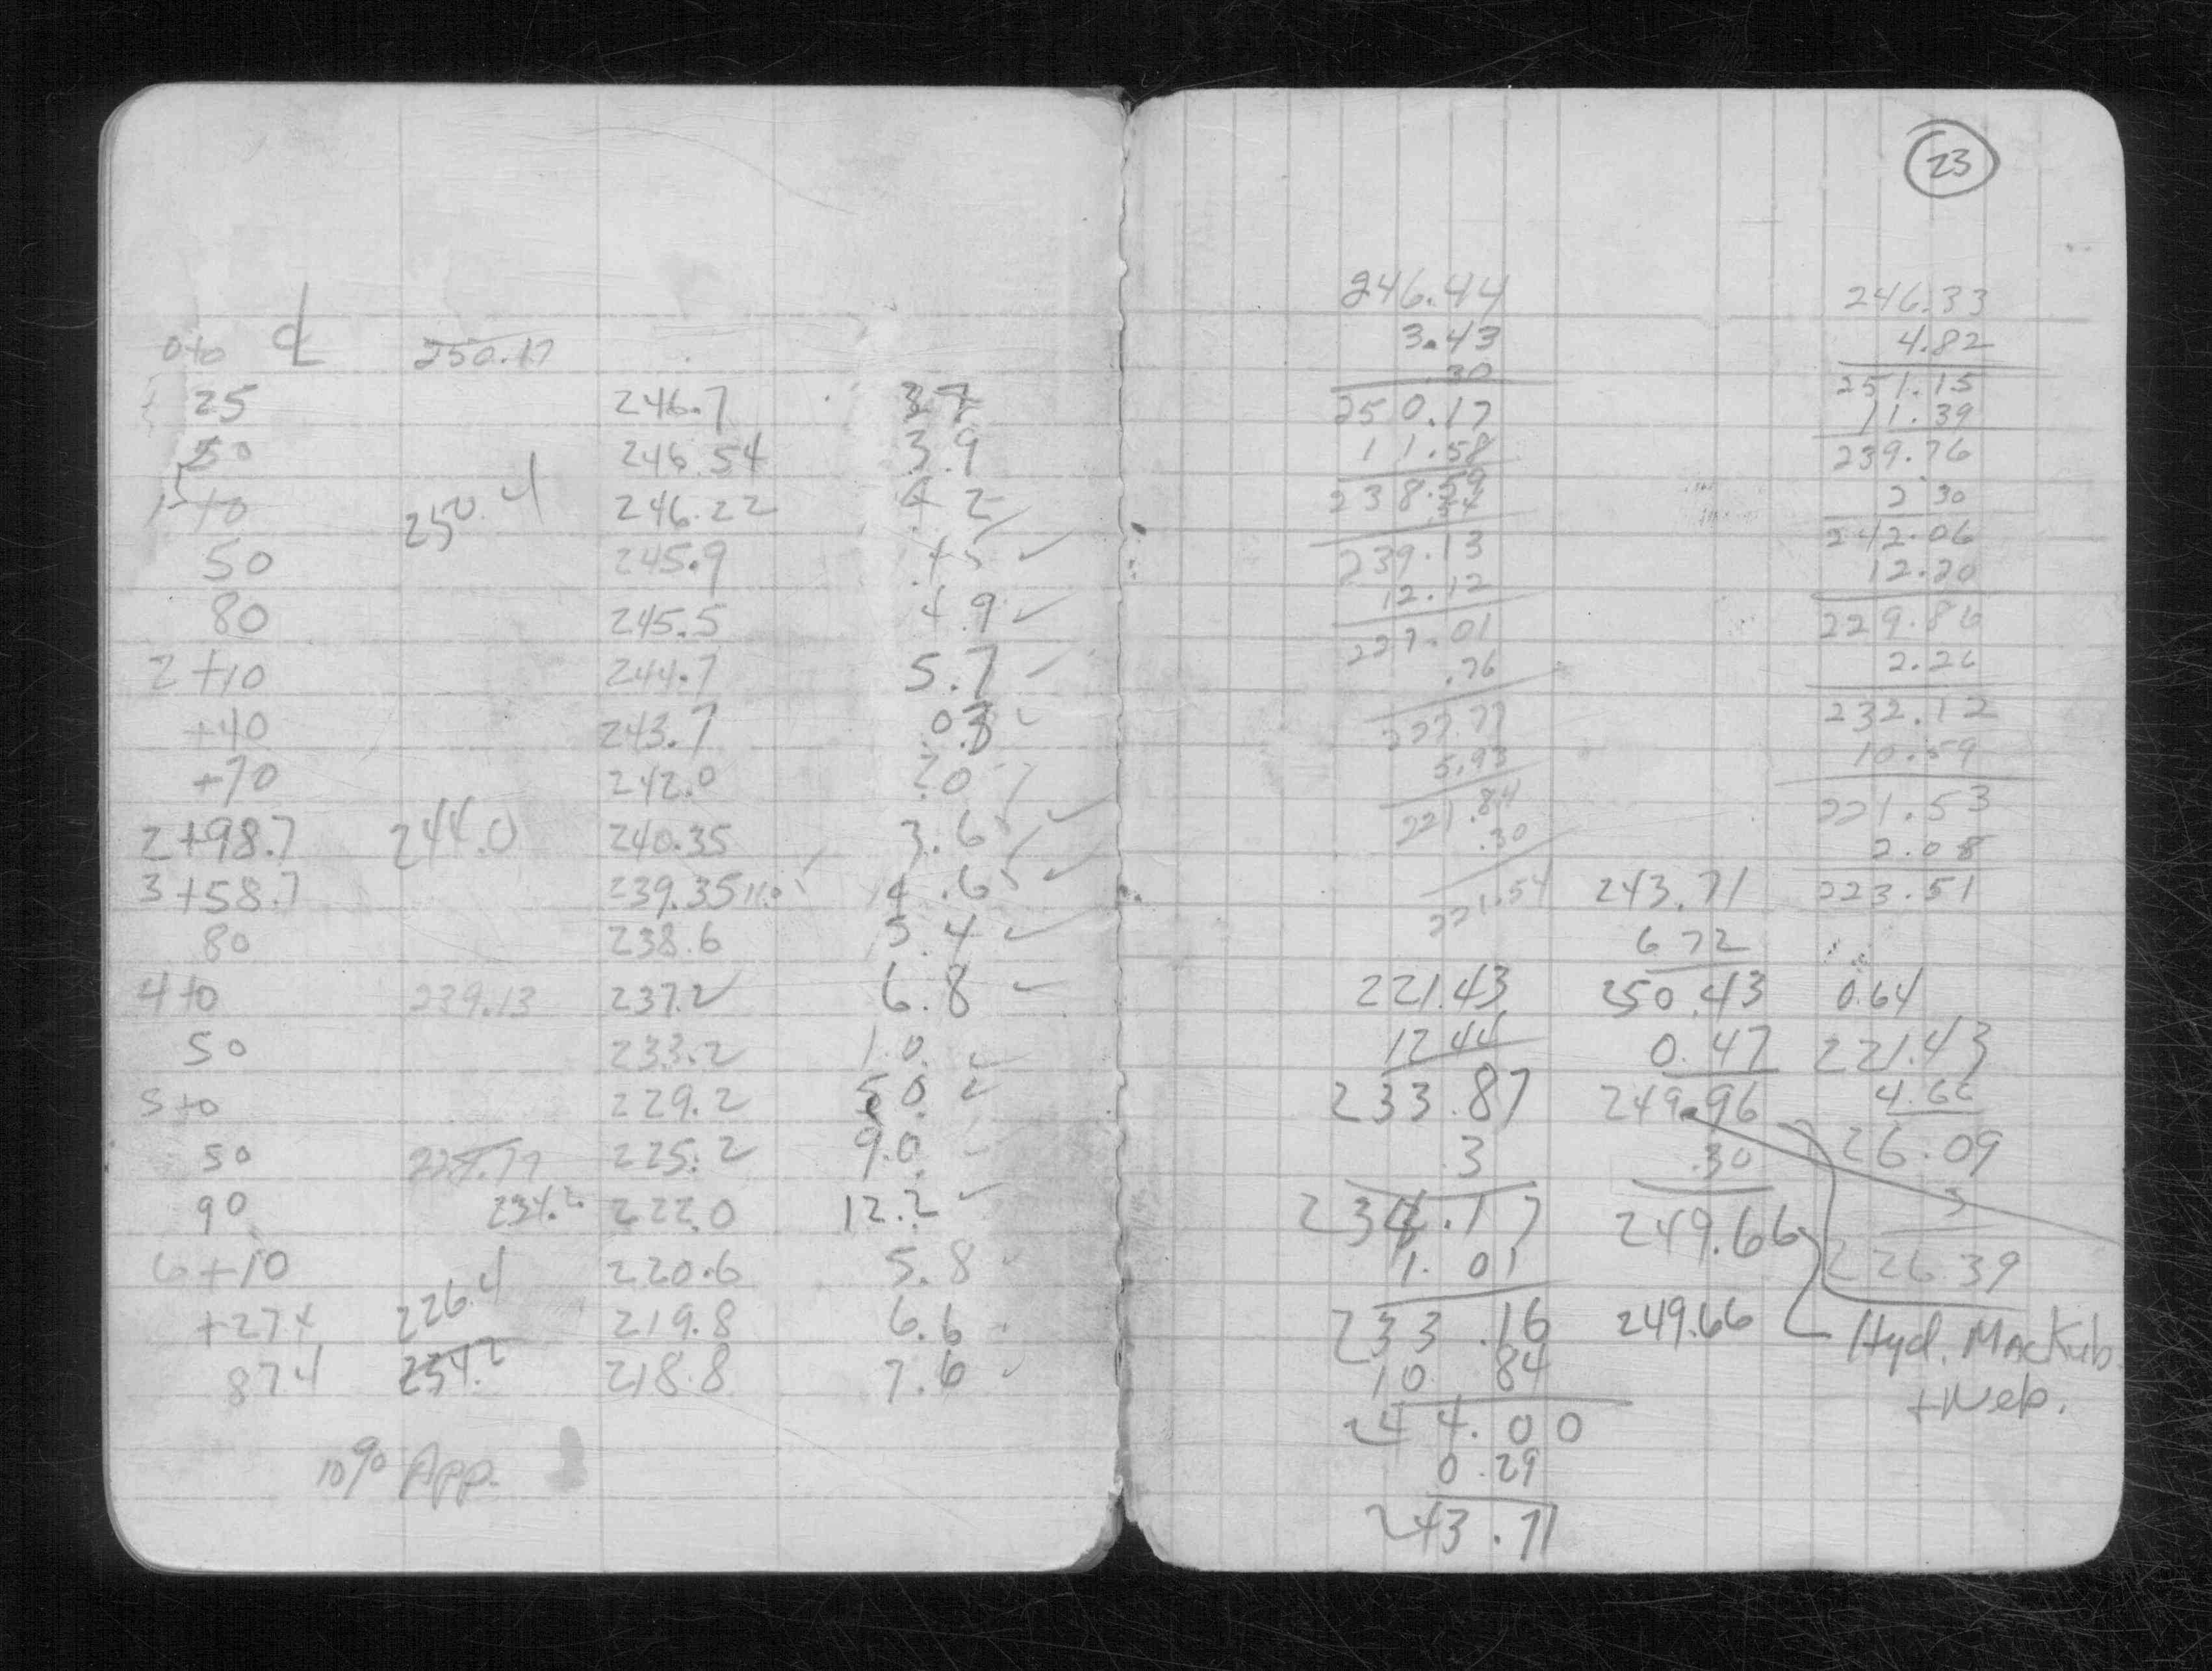 0+0 ℄ 250.17
25 246.7 3.7
50 246.54 3.9
1+0 250.4 246.22 4.2
50 245.9 4.5 ✓
80 245.5 4.9 ✓
2+10 244.7 5.7 ✓
+40 243.7 0.3 ✓
+70 242.0 2.0 ✓
2+98.7 244.0 240.35 3.65 ✓
3+58.7 239.35 4.65 ✓
80 238.6 5.4 ✓
4+0 239.13 237.2 6.8 ✓
50 233.2 1.0 ✓
5+0 229.2 5.0 ✓
50 227.77 225.2 9.0 ✓
90 234.2 222.0 12.2 ✓
6+10 220.6 5.8 ✓
+27.4 226.4 219.8 6.6
87.4 234.2 218.8 7.6 ✓
10% App.
23
246.44
3.43
.30
250.17
11.58
238.59
.54
239.13
12.12
227.01
.76
227.77
5.93
221.84
.30
221.54
221.43
12.44
233.87
.3
234.17
1.01
233.16
10.84
244.00
0.29
243.71
243.71
6.72
250.43
0.47
249.96
.30
249.66
249.66
246.33
4.82
251.15
11.39
239.76
2.30
242.06
12.20
229.86
2.26
232.12
10.59
221.53
2.08
223.51
0.64
221.43
4.66
226.09
3
226.39
Hyd. Mackub
+ Neb.